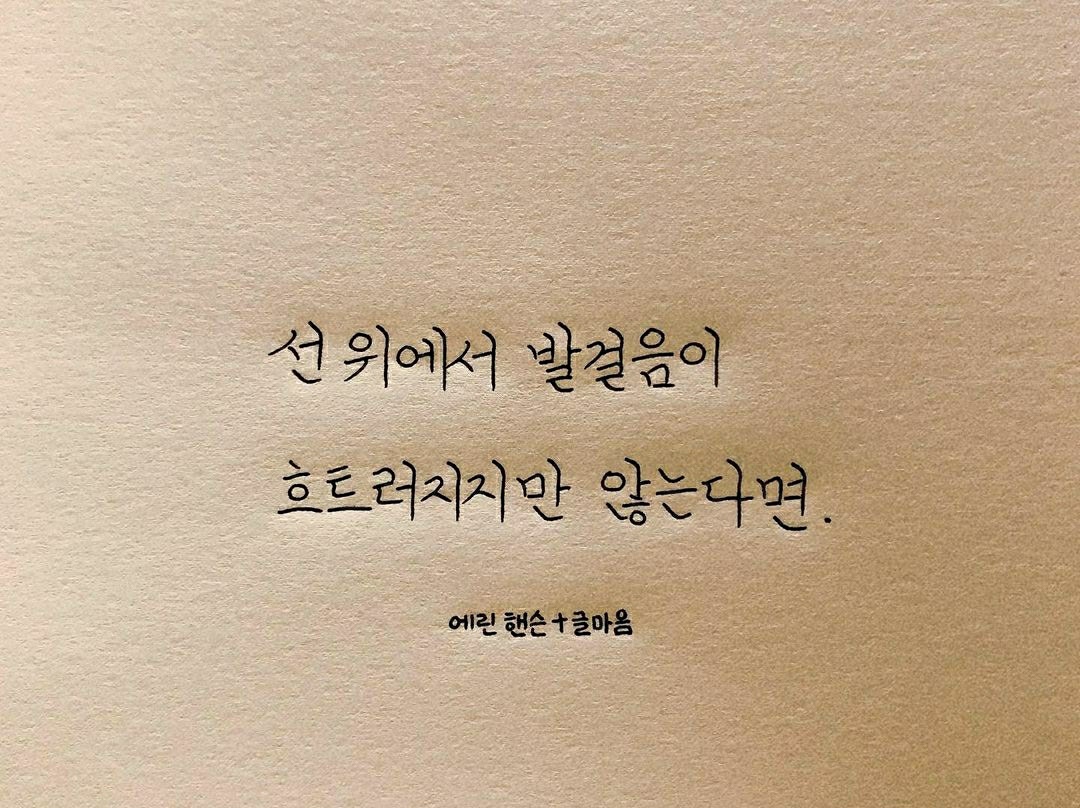 선 위에서 발걸음이
흐트러지지만 않는다면.
에린 핸슨+글마음